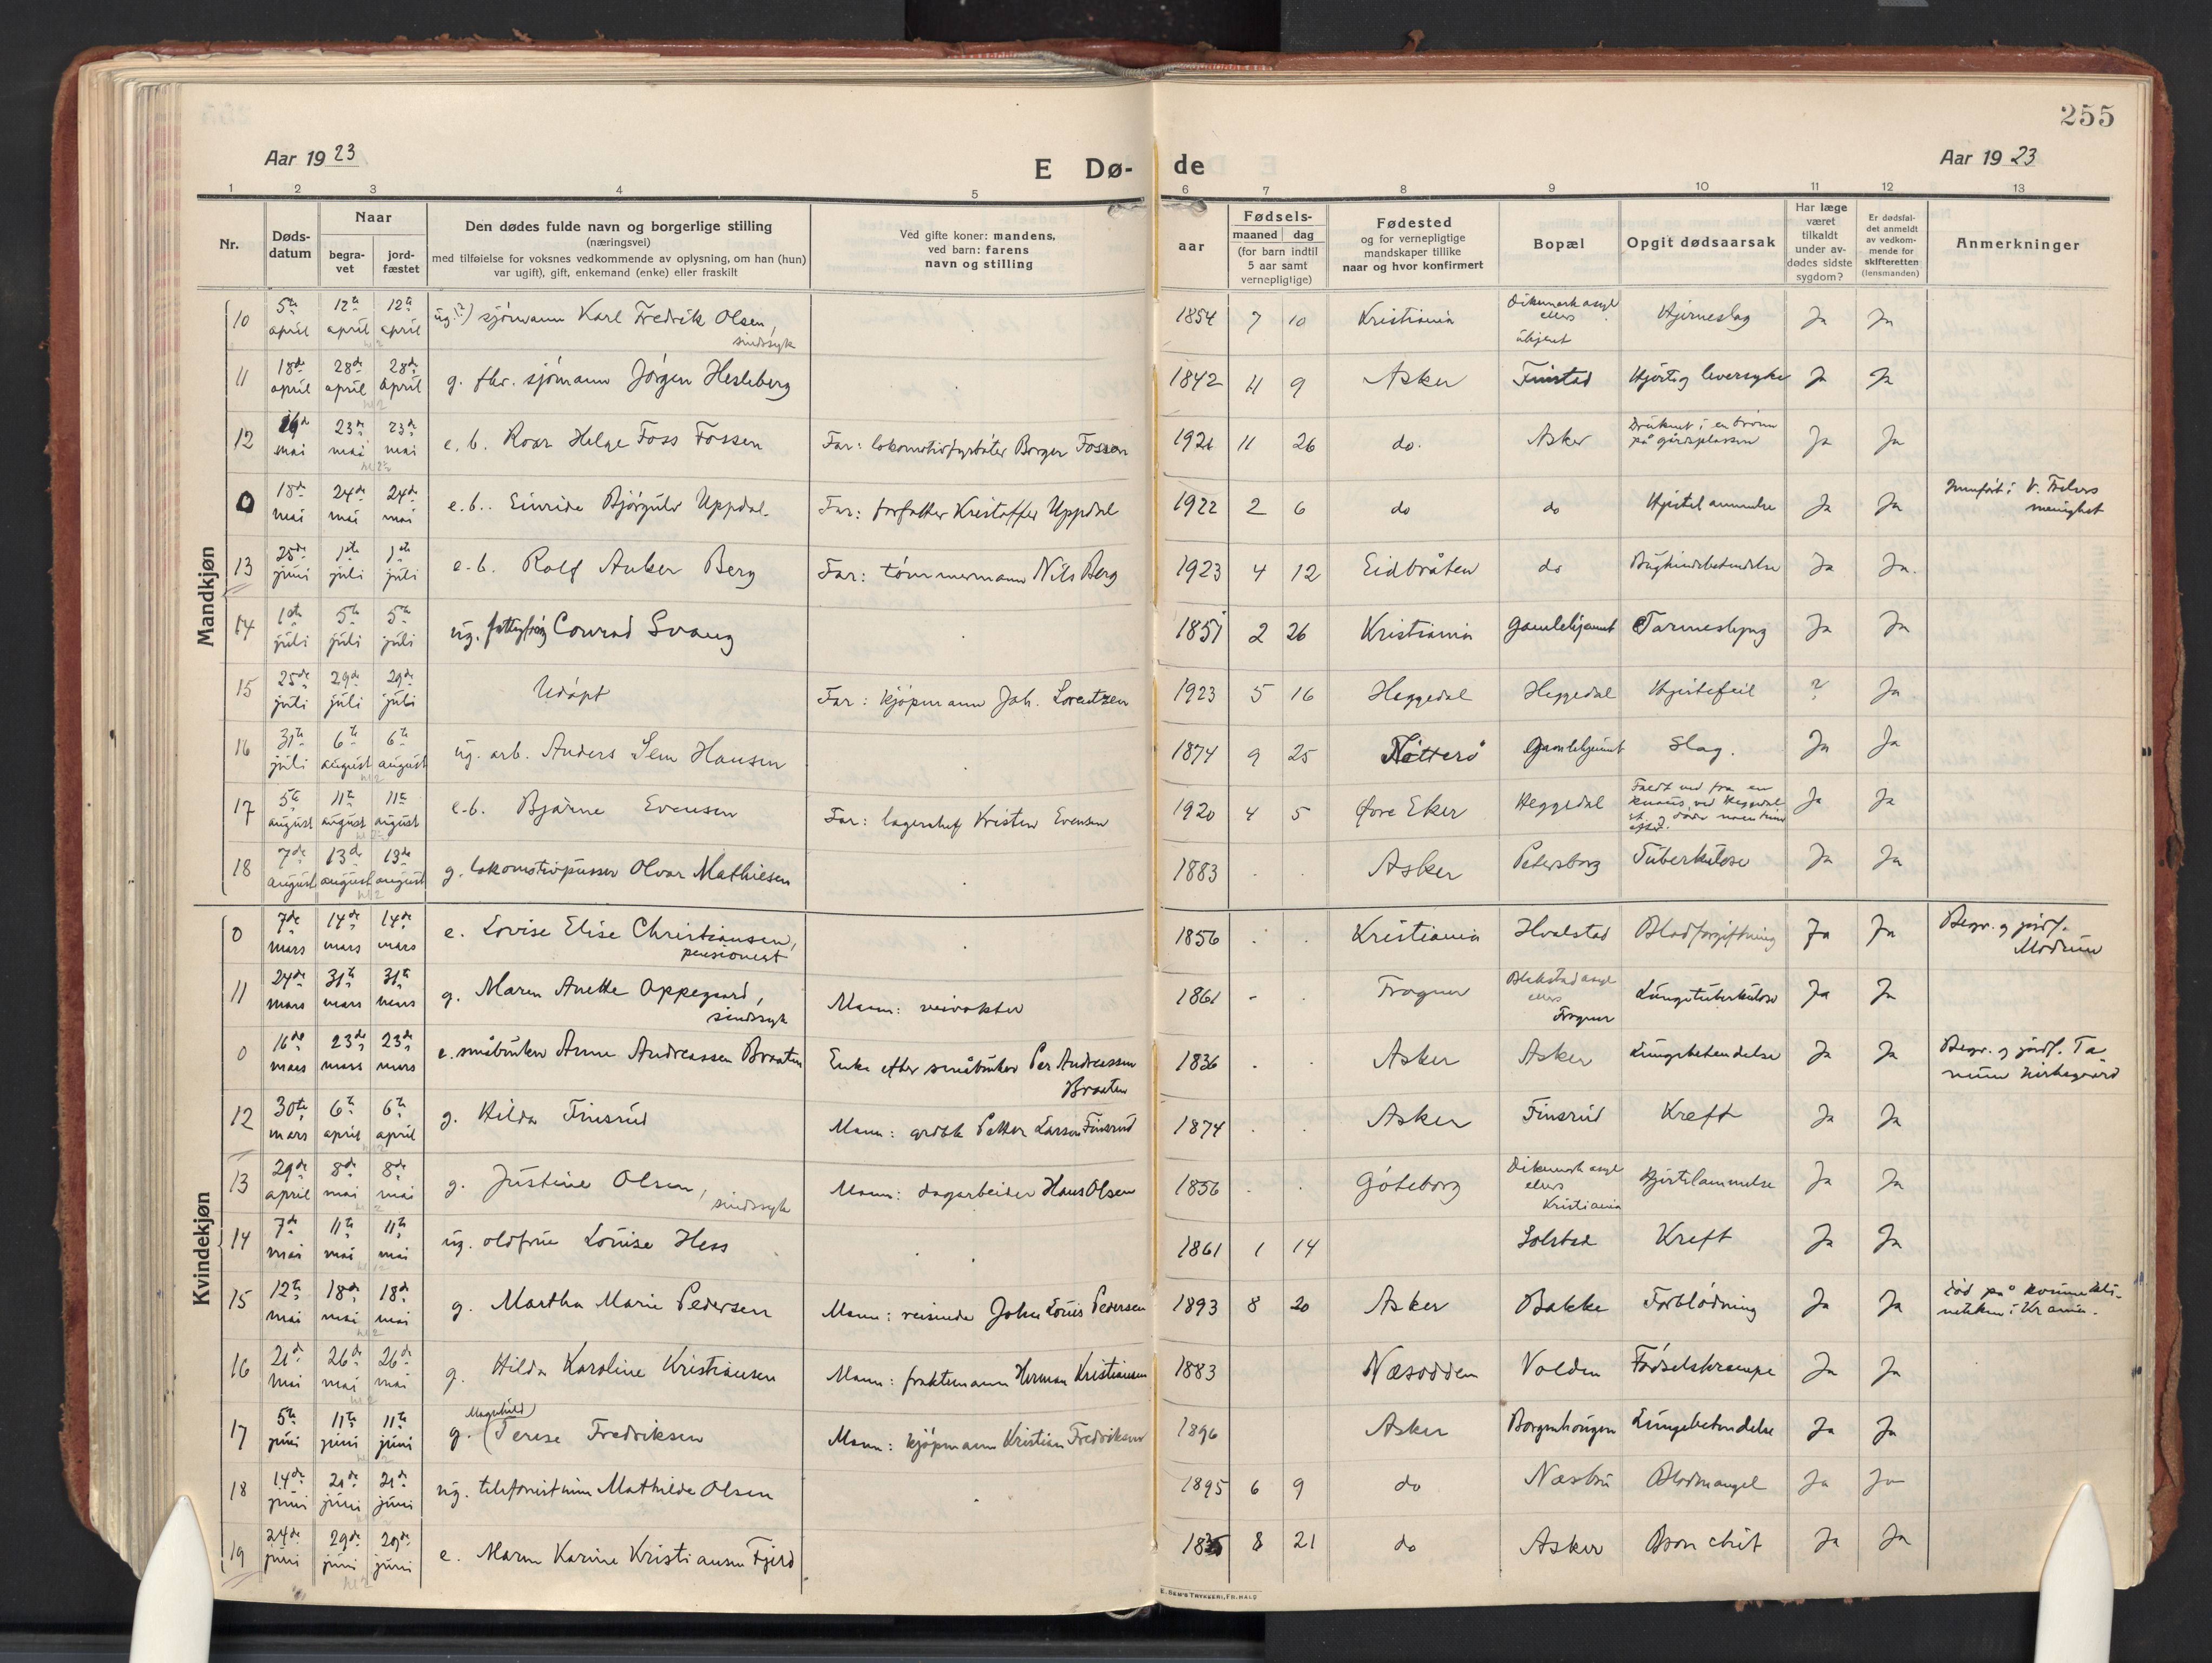 255
Aar 1923
E Dø-
de
Aar 1923
1 2 3 4 5 6 7 8 9 10 11 12 13
Nr.
Døds-
datum
Naar
begra-
vet
jord-
fæstet
Den dødes fulde navn og borgerlige stilling
(næringsvei)
med tilføielse for voksnes vedkommende av oplysning, om han (hun)
var ugift), gift, enkemand (enke) eller fraskilt
Ved gifte koner: mandens,
ved barn: farens
navn og stilling
aar
Fødsels-
maaned dag
(for barn indtil
5 aar samt
vernepligtige)
Fødested
og for vernepligtige
mandskaper tillike
naar og hvor konfirmert
Bopæl
Opgit dødsaarsak
Har læge
været
tilkaldt
under av-
dødes sidste
sygdom?
Er dødsfal-
det anmeldt
av vedkom-
mende for
skifteretten
(lensmanden)
Anmerkninger
Mandkjøn
10 5te april 12te april 12te april ug. (?) sjømann Karl Fredrik Olsen, sindssyk 1854 7 10 Kristiania Dikemark asyl ellers ukjent Hjerneslag Ja Ja
11 18de april 28de april 28de april g. fhv. sjømann Jørgen Hesleberg 1842 4 9 Asker Finstad Hjerte og leversyke Ja Ja
12 mai 23de mai 23de mai e. b. Roar Helge Foss Fossen Far: lokomotivfyrbøter Borger Fossen 1921 11 26 do. Asker Druknet i en brønn på gårdsplassen Ja Ja
0 18de mai 24de mai 24de mai e. b. Eivride Bjørgulv Uppdal. Far: forfatter Kristoffer Uppdal 1922 2 6 do do Hjertelammelse Ja Ja Innført i V. menighet
13 25de juni 1ste juli 1ste juli e. b. Rolf Anker Berg Far: tømmermann Nils Berg 1923 4 12 Eidbråten do Bughindebetendelse Ja Ja.
14 1ste juli 5te juli 5te juli ug. Conrad Svang 1851 2 26 Kristiania Gamlehjemmet Tarmeslyng Ja Ja
15 25de juli 29de juli 29de juli Udøpt Far: kjøpmann Joh. Lorentzen 1923 5 16 Heggedal Heggedal Hjertefeil ? Ja
16 31te juli 6te august 6te august ug. arb. Anders Sem Hansen 1874 9 25 Nøtterø Gamlehjemmet Slag. Ja Ja
17 5te august 11te august 11te august e. b. Bjarne Evensen Far: lagerchef Kristen Evensen 1920 4 5 Øvre Eker Heggedal Faldt ned fra en knaus ved Heggedal Ja Ja
18 7de august 13de august 13de august g. lokomotivpusser Olvar Mathiesen 1883 Asker Petersborg Tuberkulose Ja Ja
Kvindekjøn
0 7de mars 14de mars 14de mars e. Lovise Elise Christiansen, pensionist 1856 Kristiania Hvalstad Blodforgiftning Ja Ja Begr. og jordf. Modum
11 24de mars 31te mars 31te mars g. Maren Anette Oppegaard, sindssyk Mann: veivokter 1861 Frogner Blakstad asyl ellers Frogner Lungetuberkulose Ja Ja
0 16de mars 23de mars 23de mars e. småbruker Anne Andreassen Braaten Enke efter småbruker Per Andreassen Braaten 1836 Asker Asker Lungebetendelse Ja Ja Begr. og jordf. Ta-
num kirkegård
12 30te mars 6te april 6te april g. Hilda Finsrud Mann: grdbk Petter Larsen Finsrud 1874 Asker Finsrud Kreft Ja Ja
13 29de april 8de mai 8de mai g. Justine Olsen, sindssyk Mann: dagarbeider Hans Olsen 1856 Göteborg Dikemark asyl ellers Kristiania Hjertelammelse Ja Ja
14 7de mai 11te mai 11te mai ug. oldfrue Louise Hess 1861 1 14 Solstad Kreft Ja Ja
15 12te mai 18de mai 18de mai g. Martha Marie Pedersen Mann: reisende John Louis Pedersen 1893 8 20 Asker Bakke Forblødning Ja Ja Død på kvinnekli-
nikken i Krania.
16 21de mai 26de mai 26de mai g. Hilda Karoline Kristiansen Mann: fraktemann Herman Kristiansen 1883 Næsodden Volden Fødselskrampe Ja Ja
17 5te juni 11te juni 11te juni g. (Magnhild) Terese Fredriksen Mann: kjøpmann Kristian Fredriksen 1896 Asker Borgenhaugen Lungebetendelse Ja Ja
18 14de juni 21de juni 21de juni ug. telefonistinne Mathilde Olsen 1895 6 9 do Næsbru Blodmangel Ja Ja
19 24de juni 29de juni 29de juni e. Maren Karine Kristiansen Fjeld 8 21 do Asker Bronchit Ja Ja
E. SEM'S TRYKKERI, FR.HALD